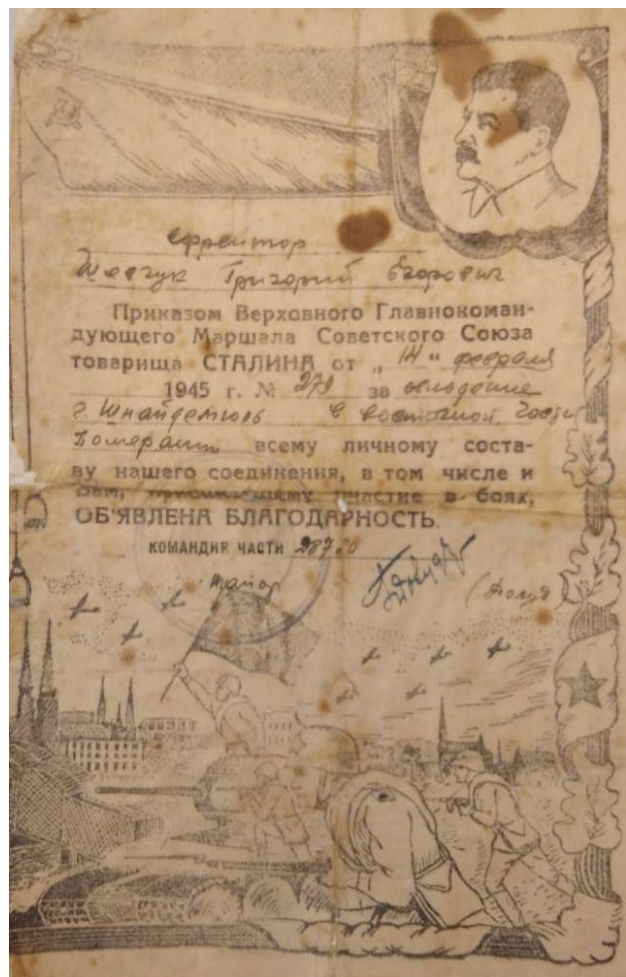 Ефрейтор
Шевчук Григорий Егорович
Приказом Верховного Главнокоман-
дующего Маршала Советского Союза
товарища СТАЛИНА от „14" февраля
1945 г. № 279 за овладение
г. Шнайдемюль в восточной части
Померании всему личному соста-
ву нашего соединения, в том числе и
Вам, принимавшему участие в боях,
ОБ'ЯВЛЕНА БЛАГОДАРНОСТЬ.
КОМАНДИР ЧАСТИ 28720
майор